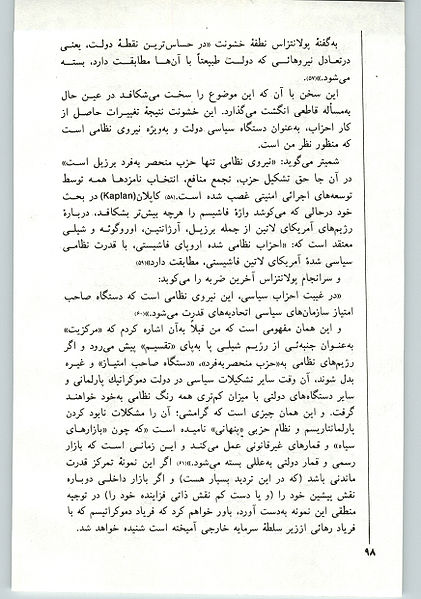 به‌گفتهٔ پولانتزاس نطفهٔ خشونت «در حساس‌ترین نقطهٔ دولت، یعنی
درتعادل نیروهائی که دولت طبیعتاً با آن‌ها مطابقت دارد، بسته
می‌شود.»(۵۷).
این سخن با آن که این موضوع را سخت می‌شکافد در عین حال
به‌مسألهٔ قاطعی انگشت می‌گذارد. این خشونت نتیجهٔ تغییرات حاصل از
کار احزاب، به‌عنوان دستگاه سیاسی دولت و به‌ویژه نیروی نظامی است
که منظور نظر من است.
شمیتر می‌گوید: «نیروی نظامی تنها حزب منحصر به‌فرد برزیل است»
در آن جا حق تشکیل حزب، تجمع منافع، انتخاب نامزدها همه توسط
توسعه‌های اجرائی امنیتی غصب شده است.(۵۸) کاپلان(Kaplan) در بحث
خود درحالی که می‌کوشد واژهٔ فاشیسم را هرچه بیش‌تر بشکافد، دربارهٔ
رژیم‌های آمریکای لاتین از جمله برزیل، آرژانتین، اوروگوئه و شیلی
معتقد است که: «احزاب نظامی شده اروپای فاشیستی، با قدرت نظامی
سیاسی شدهٔ آمریکای لاتین فاشیستی، مطابقت دارد»(۵۹)
و سرانجام پولانتزاس آخرین ضربه را می‌کوبد:
«در غیبت احزاب سیاسی، این نیروی نظامی است که دستگاه صاحب
امتیاز سازمان‌های سیاسی اتحادیه‌های قدرت می‌شود.»(۶۰)
و این همان مفهومی است که من قبلاً به‌آن اشاره کردم که «مرکزیت»
به‌عنوان جنبه‌ئی از رژیم شیلی پا به‌پای «تقسیم» پیش می‌رود و اگر
رژیم‌های نظامی به«حزب منحصربه‌فرد»، «دستگاه صاحب امتیاز» و غیره
بدل شوند، آن وقت سایر تشکیلات سیاسی در دولت دموکراتیك پارلمانی و
سایر دستگاه‌های دولتی با میزان کم‌تری همه رنگ نظامی به‌خود خواهند
گرفت. و این همان چیزی است که گرامشی؛ آن را مشکلات نابود کردن
پارلمانتاریسم و نظام حزبی «پنهانی» نامیده است «که چون «بازارهای
سیاه» و قمارهای غیرقانونی عمل می‌کند و این زمانی است که بازار
رسمی و قمار دولتی به‌عللی بسته می‌شود.»(۶۱) اگر این نمونهٔ تمرکز قدرت
ماندنی باشد (که در این تردید بسیار هست) و اگر بازار داخلی دوباره
نقش پیشین خود را (و یا دست کم نقش ذاتی فزاینده خود را) در توجیه
منطقی این نمونه به‌دست آورد، باور خواهم کرد که فریاد دموکراتیسم که با
فریاد رهائی اززیر سلطهٔ سرمایه خارجی آمیخته است شنیده خواهد شد.
۹۸